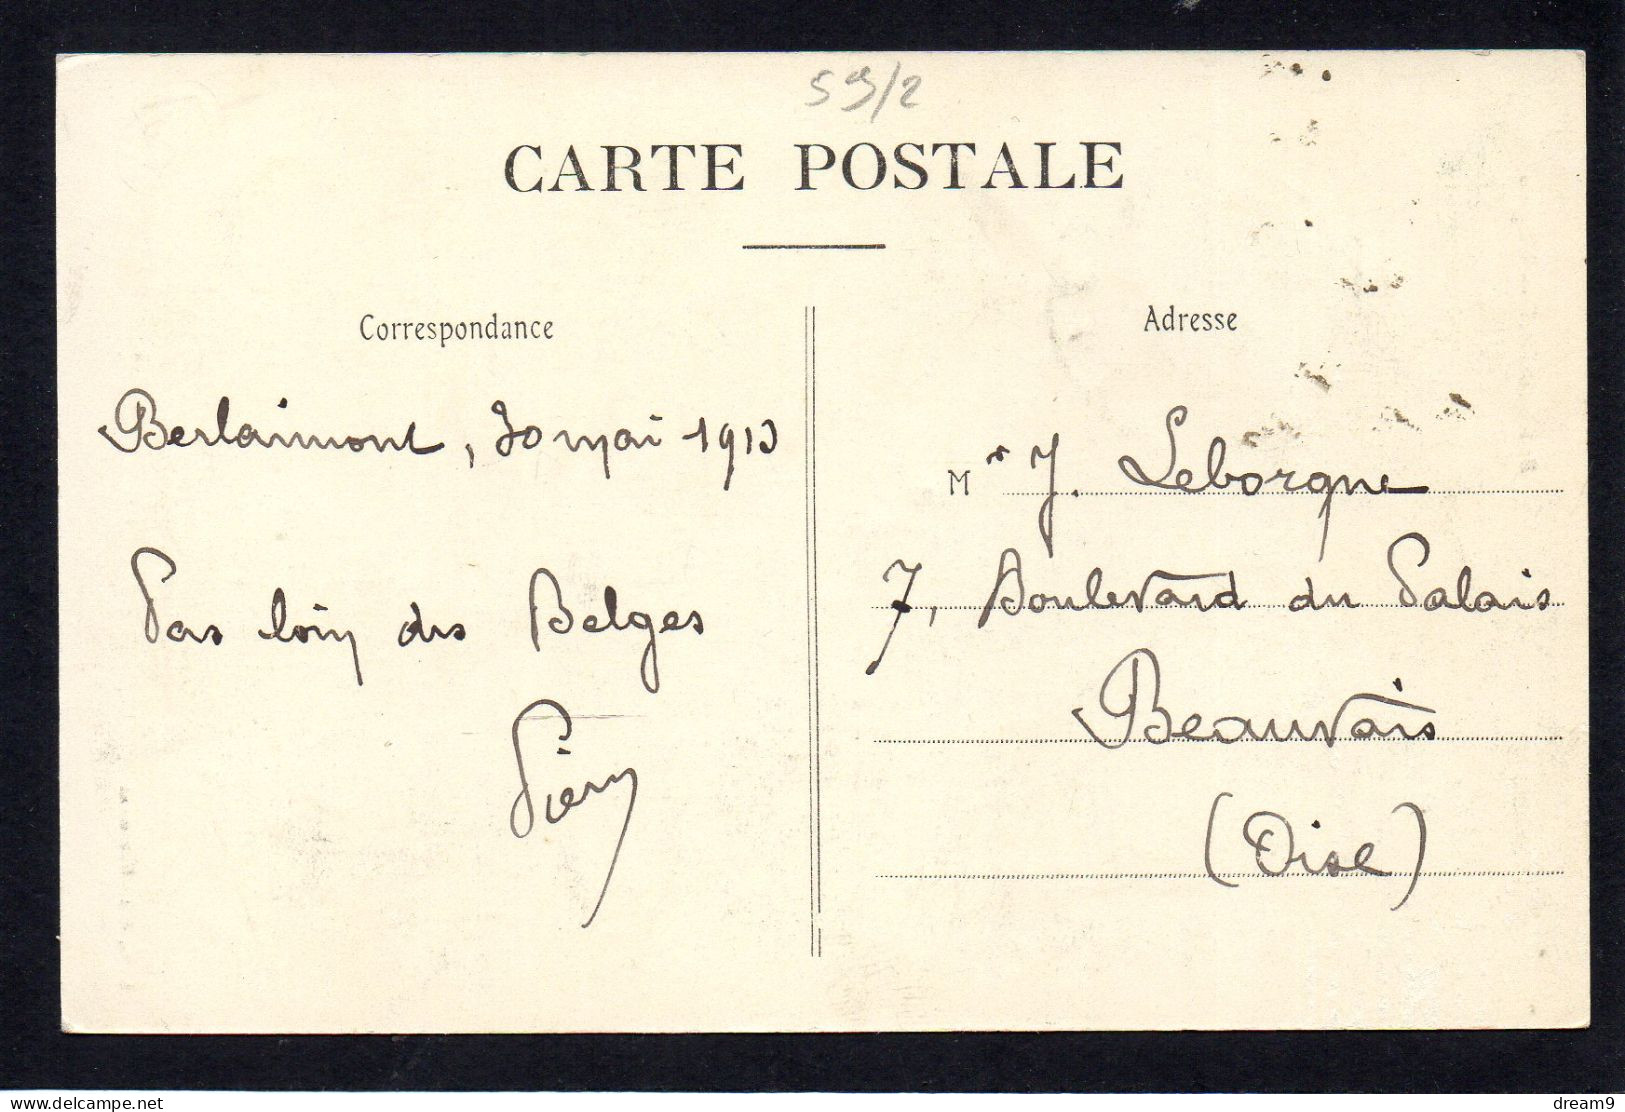 59/2
CARTE POSTALE
Correspondance
Adresse
Berlaimont, 30 mai 1913
Pas loin des Belges
Mr J. Leborgne
7, Boulevard du Palais
Beauvais
(Oise)
delcampe.net
dream9